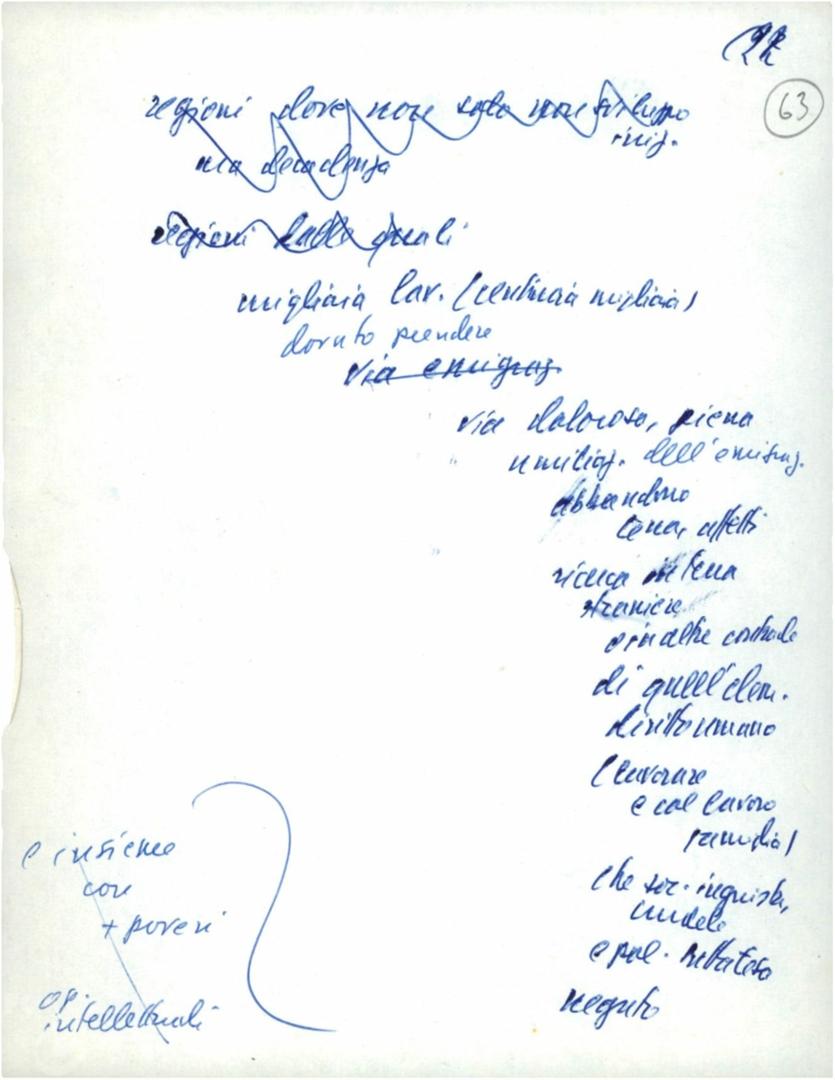 22
63
regioni dove non solo non sviluppo
ma decadenza
regioni dalle quali
migliaia lav. (centinaia migliaia)
dovuto prendere
via emigraz.
via dolorosa, piena
umiliaz. dell'emigraz.
abbandono
terra, affetti
ricerca in terra
straniera
o in altre contrade
di quell'elem.
diritto umano
(lavorare
e col lavoro
famiglia)
che soc. ingiusta,
crudele
e pol.
negato
e insieme
con
+ poveri
op.
intellettuali